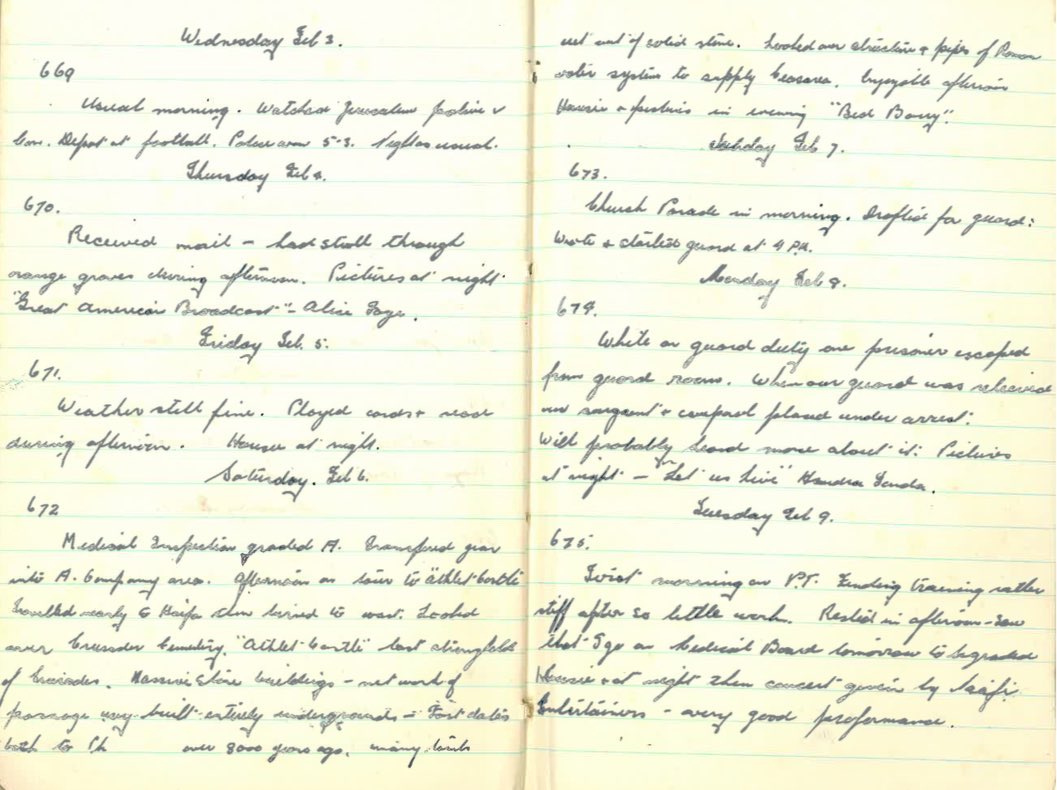 Wednesday Feb 3.
669
Usual morning. Watched Jerusalem police v
Con. Depot at football. Police won 5-3. Night as usual.
Thursday Feb 4.
670.
Received mail – had stroll through
orange groves during afternoon. Pictures at night
"Great American Broadcast" – Alice Faye.
Friday Feb. 5.
671.
Weather still fine. Played cards + read
during afternoon. Housie at night.
Saturday. Feb 6.
672
Medical Inspection graded A. Transfered gear
into A. Company area. Afternoon on tour to Athlet Castle
Travelled nearly to Haifa then turned to west. Looked
over Crusader Cemetery, "Athlet Castle" last stronghold
of Crusades. Massive stone buildings – net work of
passage way built entirely underground – Fort dates
back to Ph over 3000 years ago. many tombs
cut out of solid stone. Looked over structure + pipes of Roman
water system to supply Ceasarea. Enjoyable afternoon
Housie + pictures in evening "Bad Boy".
Sunday Feb 7.
673.
Church Parade in morning. Drafted for guard:
Wrote + started guard at 4 P.M.
Monday Feb 8.
674.
While on guard duty one prisoner escaped
from guard room. When our guard was releived
our sargent + corporal placed under arrest.
Will probably heard more about it. Pictures
at night – "Let us Live" Henry Fonda.
Tuesday Feb 9.
675.
First morning on P.T. Finding training rather
stiff after so little work. Rested in afternoon – saw
that I go on Medical Board tomorrow to be graded
Housie at night then concert given by Naafi
Entertainers – very good proformance.